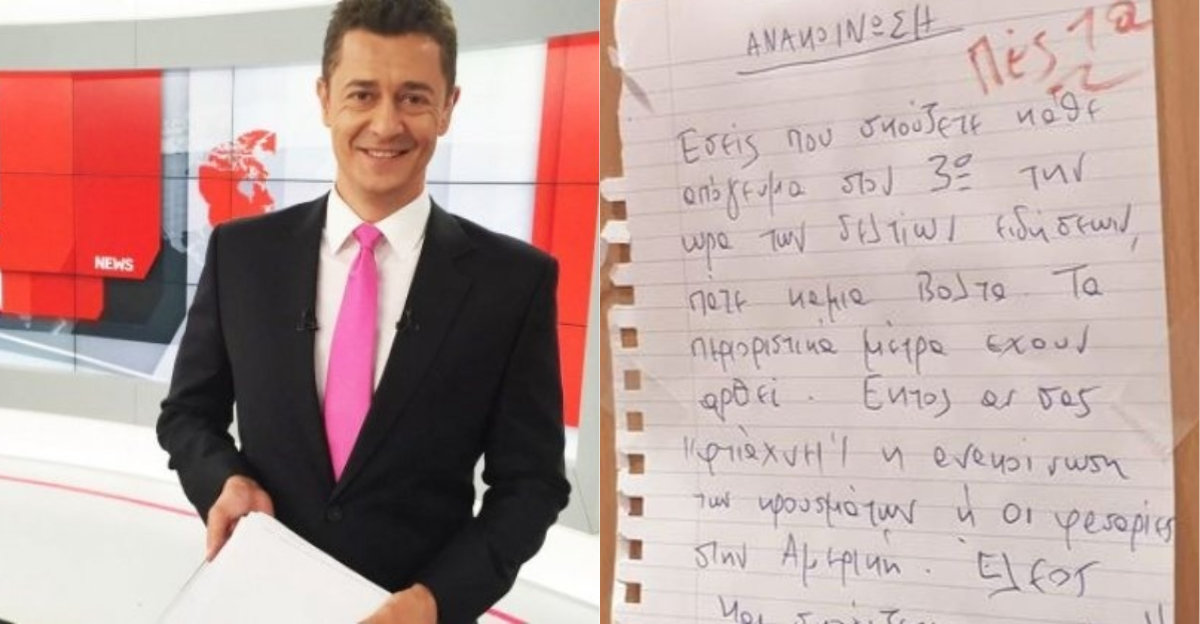 NEWS
ΑΝΑΚΟΙΝΩΣΗ
Πές τα
Εσείς που σκούζετε κάθε
απόγευμα στον 3º την
ωρα των δελτίων ειδήσεων,
πάτε καμια βολτα. Τα
περιοριστικά μέτρα εχουν
αρθεί. Εκτος αν σας
"φτιάχνη" η ανακοινωση
των κρουσμάτων ή οι φασαρίες
στην Αμερικη. Ελεος
και